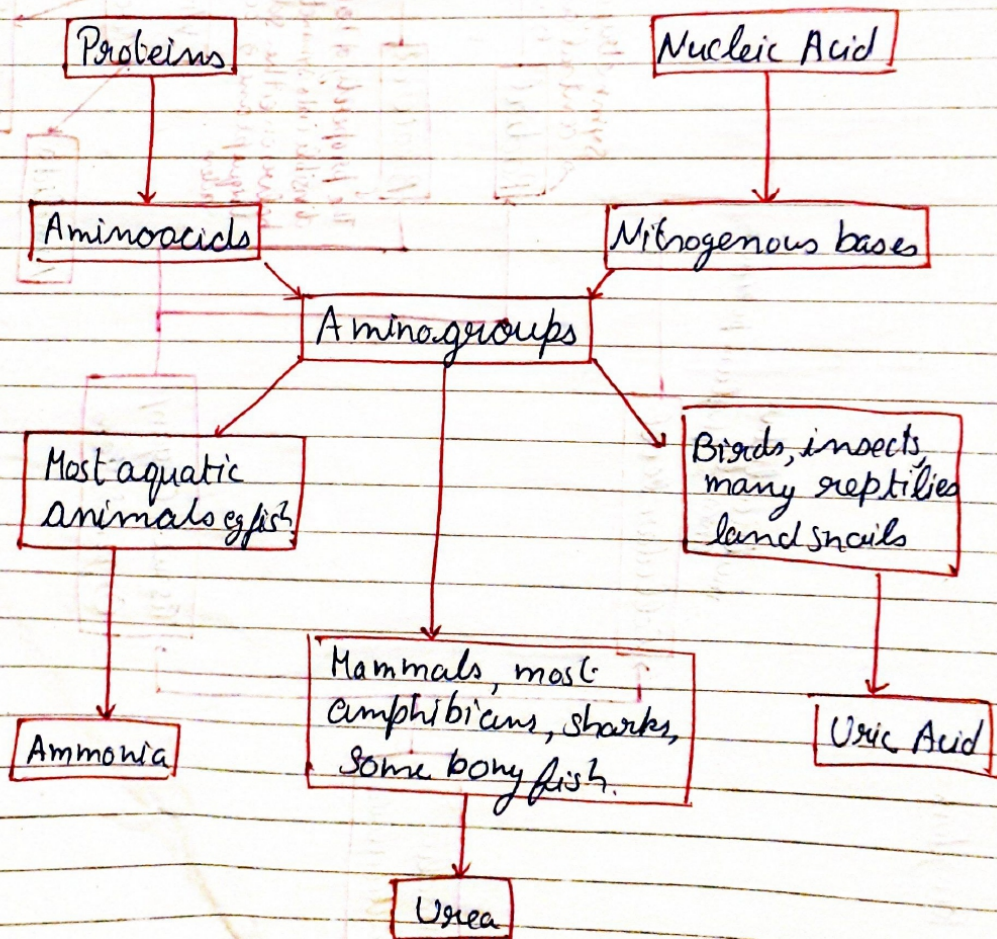 Proteins
Nucleic Acid
Aminoacids
Nitrogenous bases
Amino groups
Most aquatic
animals eg fish
Birds, insects,
many reptilies
land snails
Mammals, most
amphibians, sharks,
some bony fish.
Ammonia
Uric Acid
Urea